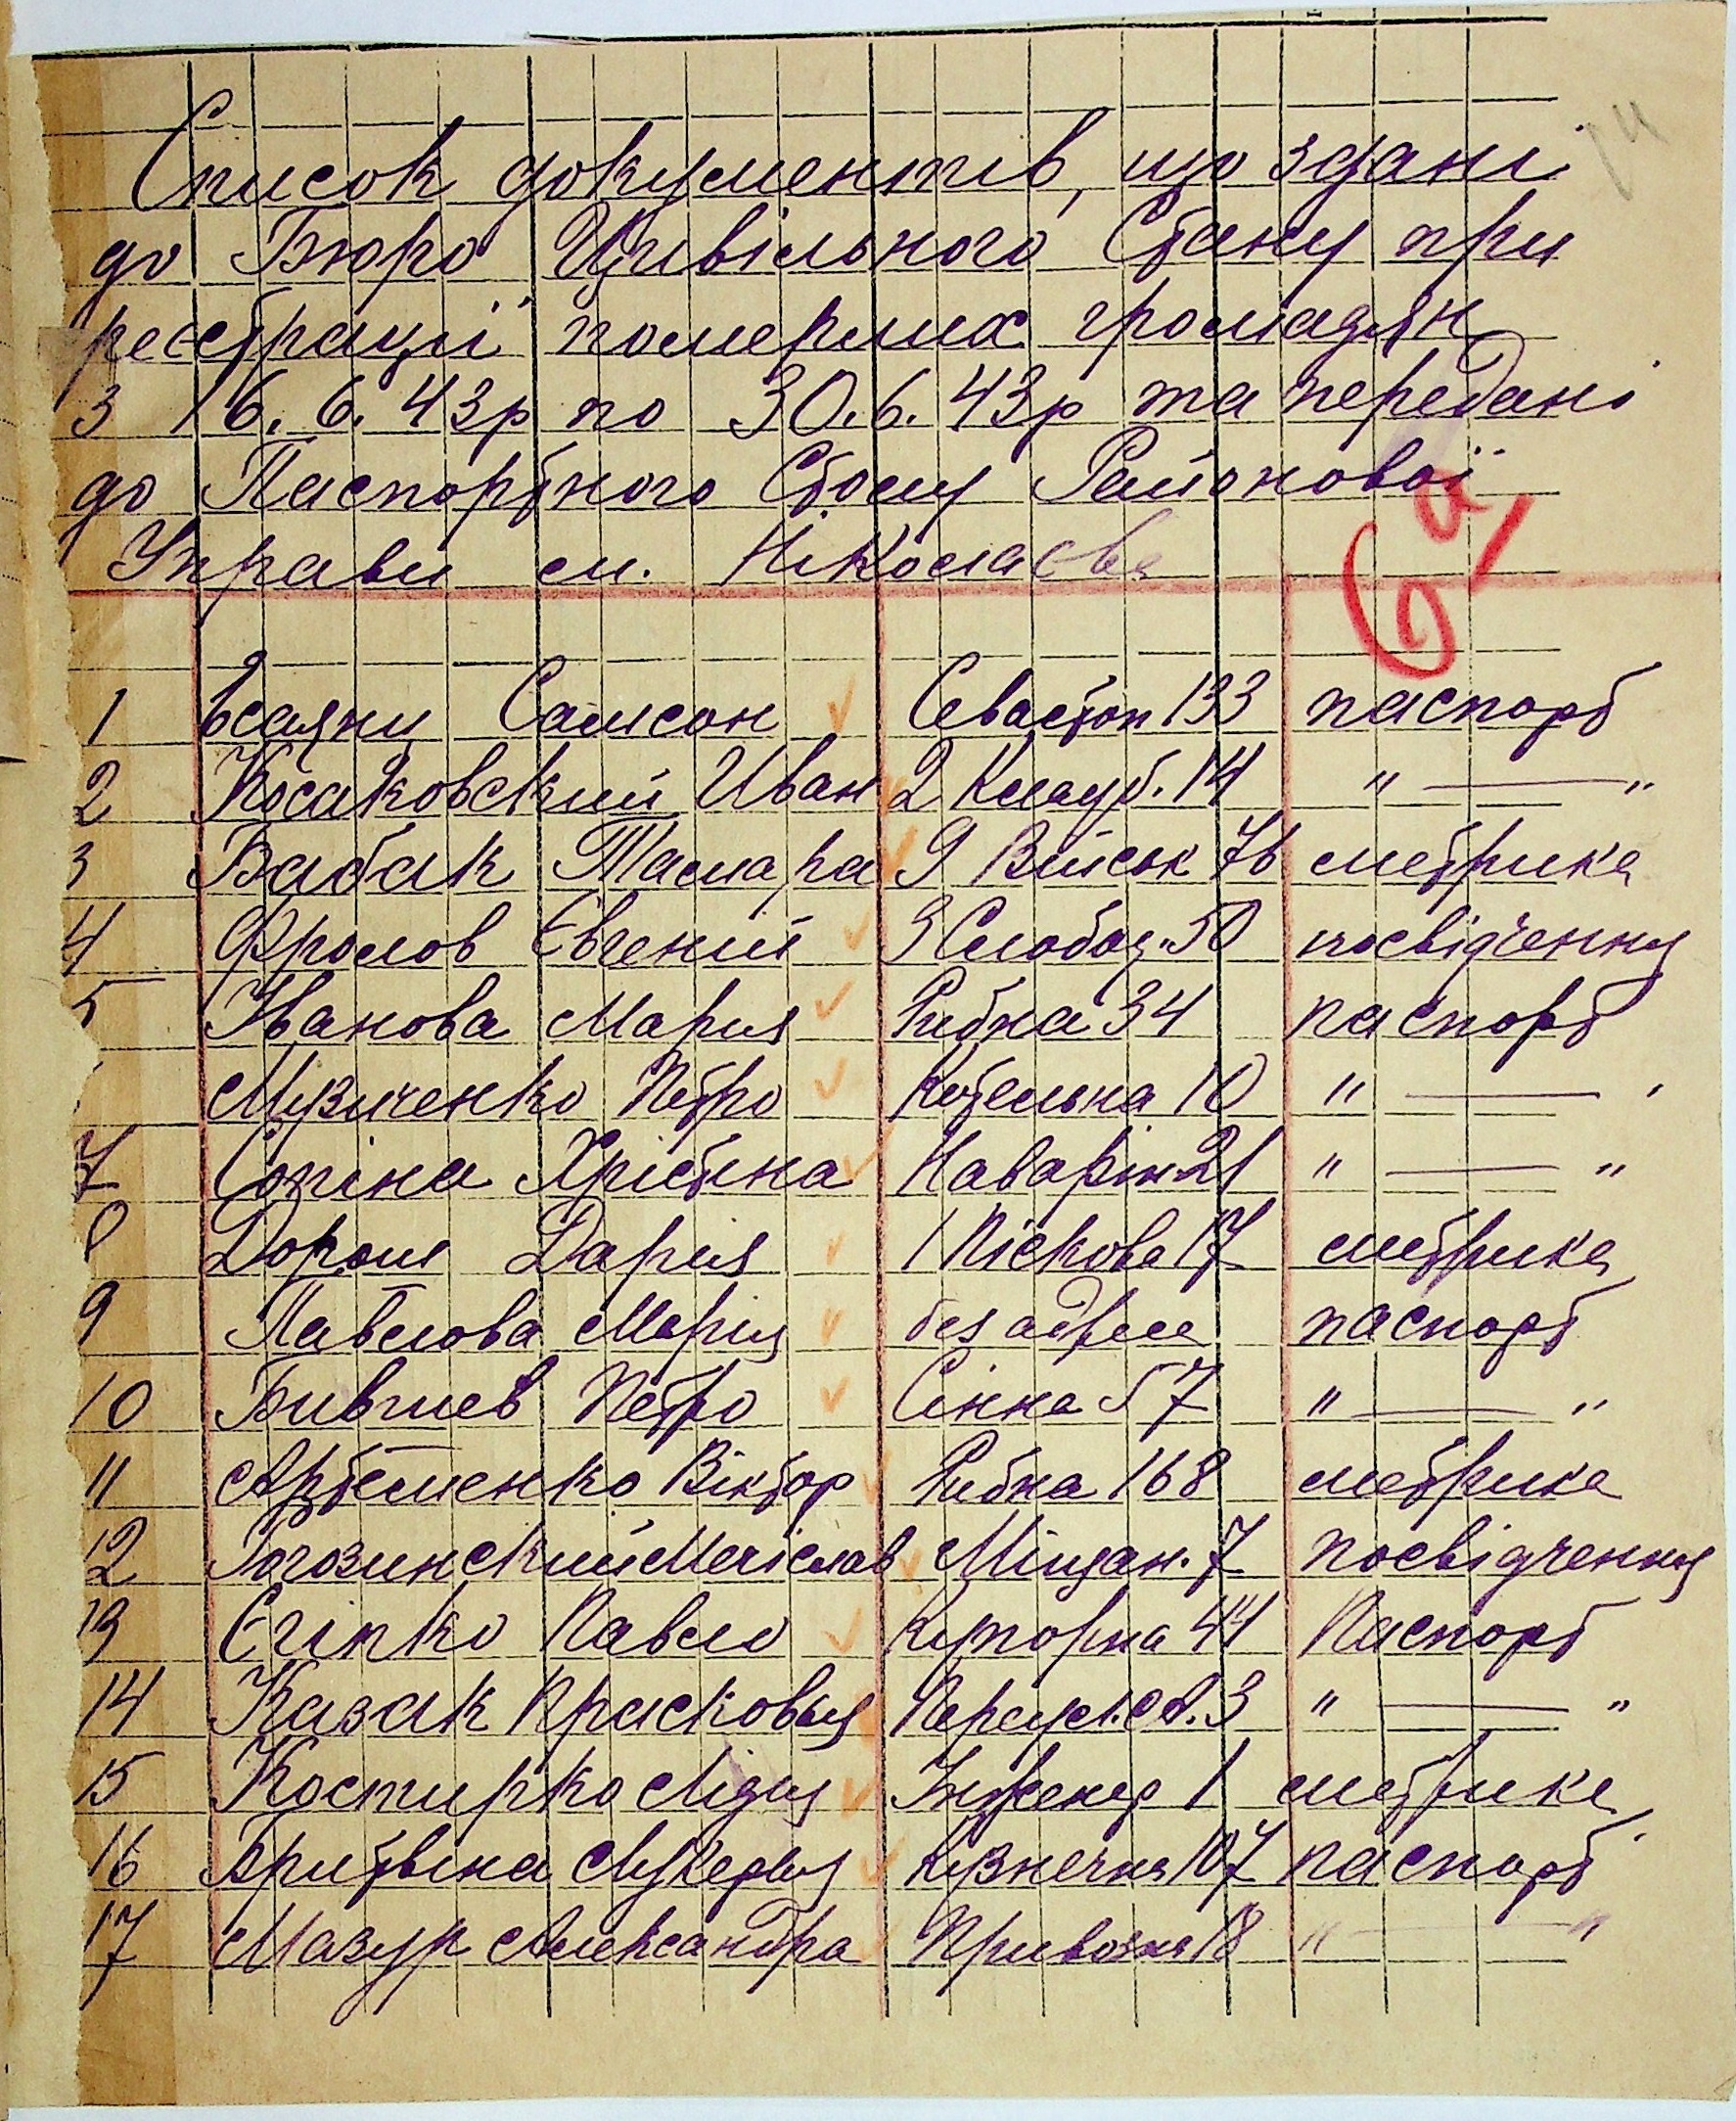 Список документів, що здані
до Бюро Цивільного Стану при
реєстрації померлих громадян
з 16. 6. 43р по 30. 6. 43р та передані
до Паспортного Столу Районової
Управи м. Ніколаєва
6а
1 Всаянц Самсон Севастоп 133 паспорт
2 Косаковский Иван 2 Клауб. 14 " — "
3 Бабак Тамара 9 Військ 76 метрика
4 Фролов Євгений 3 Слобод. 50 посвідчення
5 Іванова Мария Рибна 34 паспорт
Музиченко Петро Котельна 10 " — "
7 Сопіна Хрістина Наварін 21 " — "
8 Дорош Дария 1 Піскова 17 метрика
9 Павлова Марія без адреса паспорт
10 Бившев Петро Сінна 57 " — "
11 Артеменко Віктор Рибна 168 метрика
12 Рогозинский Мечіслав Міщан. 7 посвідчення
13 Єгіпко Павло Купорна 44 Паспорт
14 Казак Прасковья 3 " — "
15 Костирко Лідия Інженер 1 метрика
16 Бритвіна Лукерья Кузнечна 107 паспорт
17 Мазур Александра Привозна 18 " — "